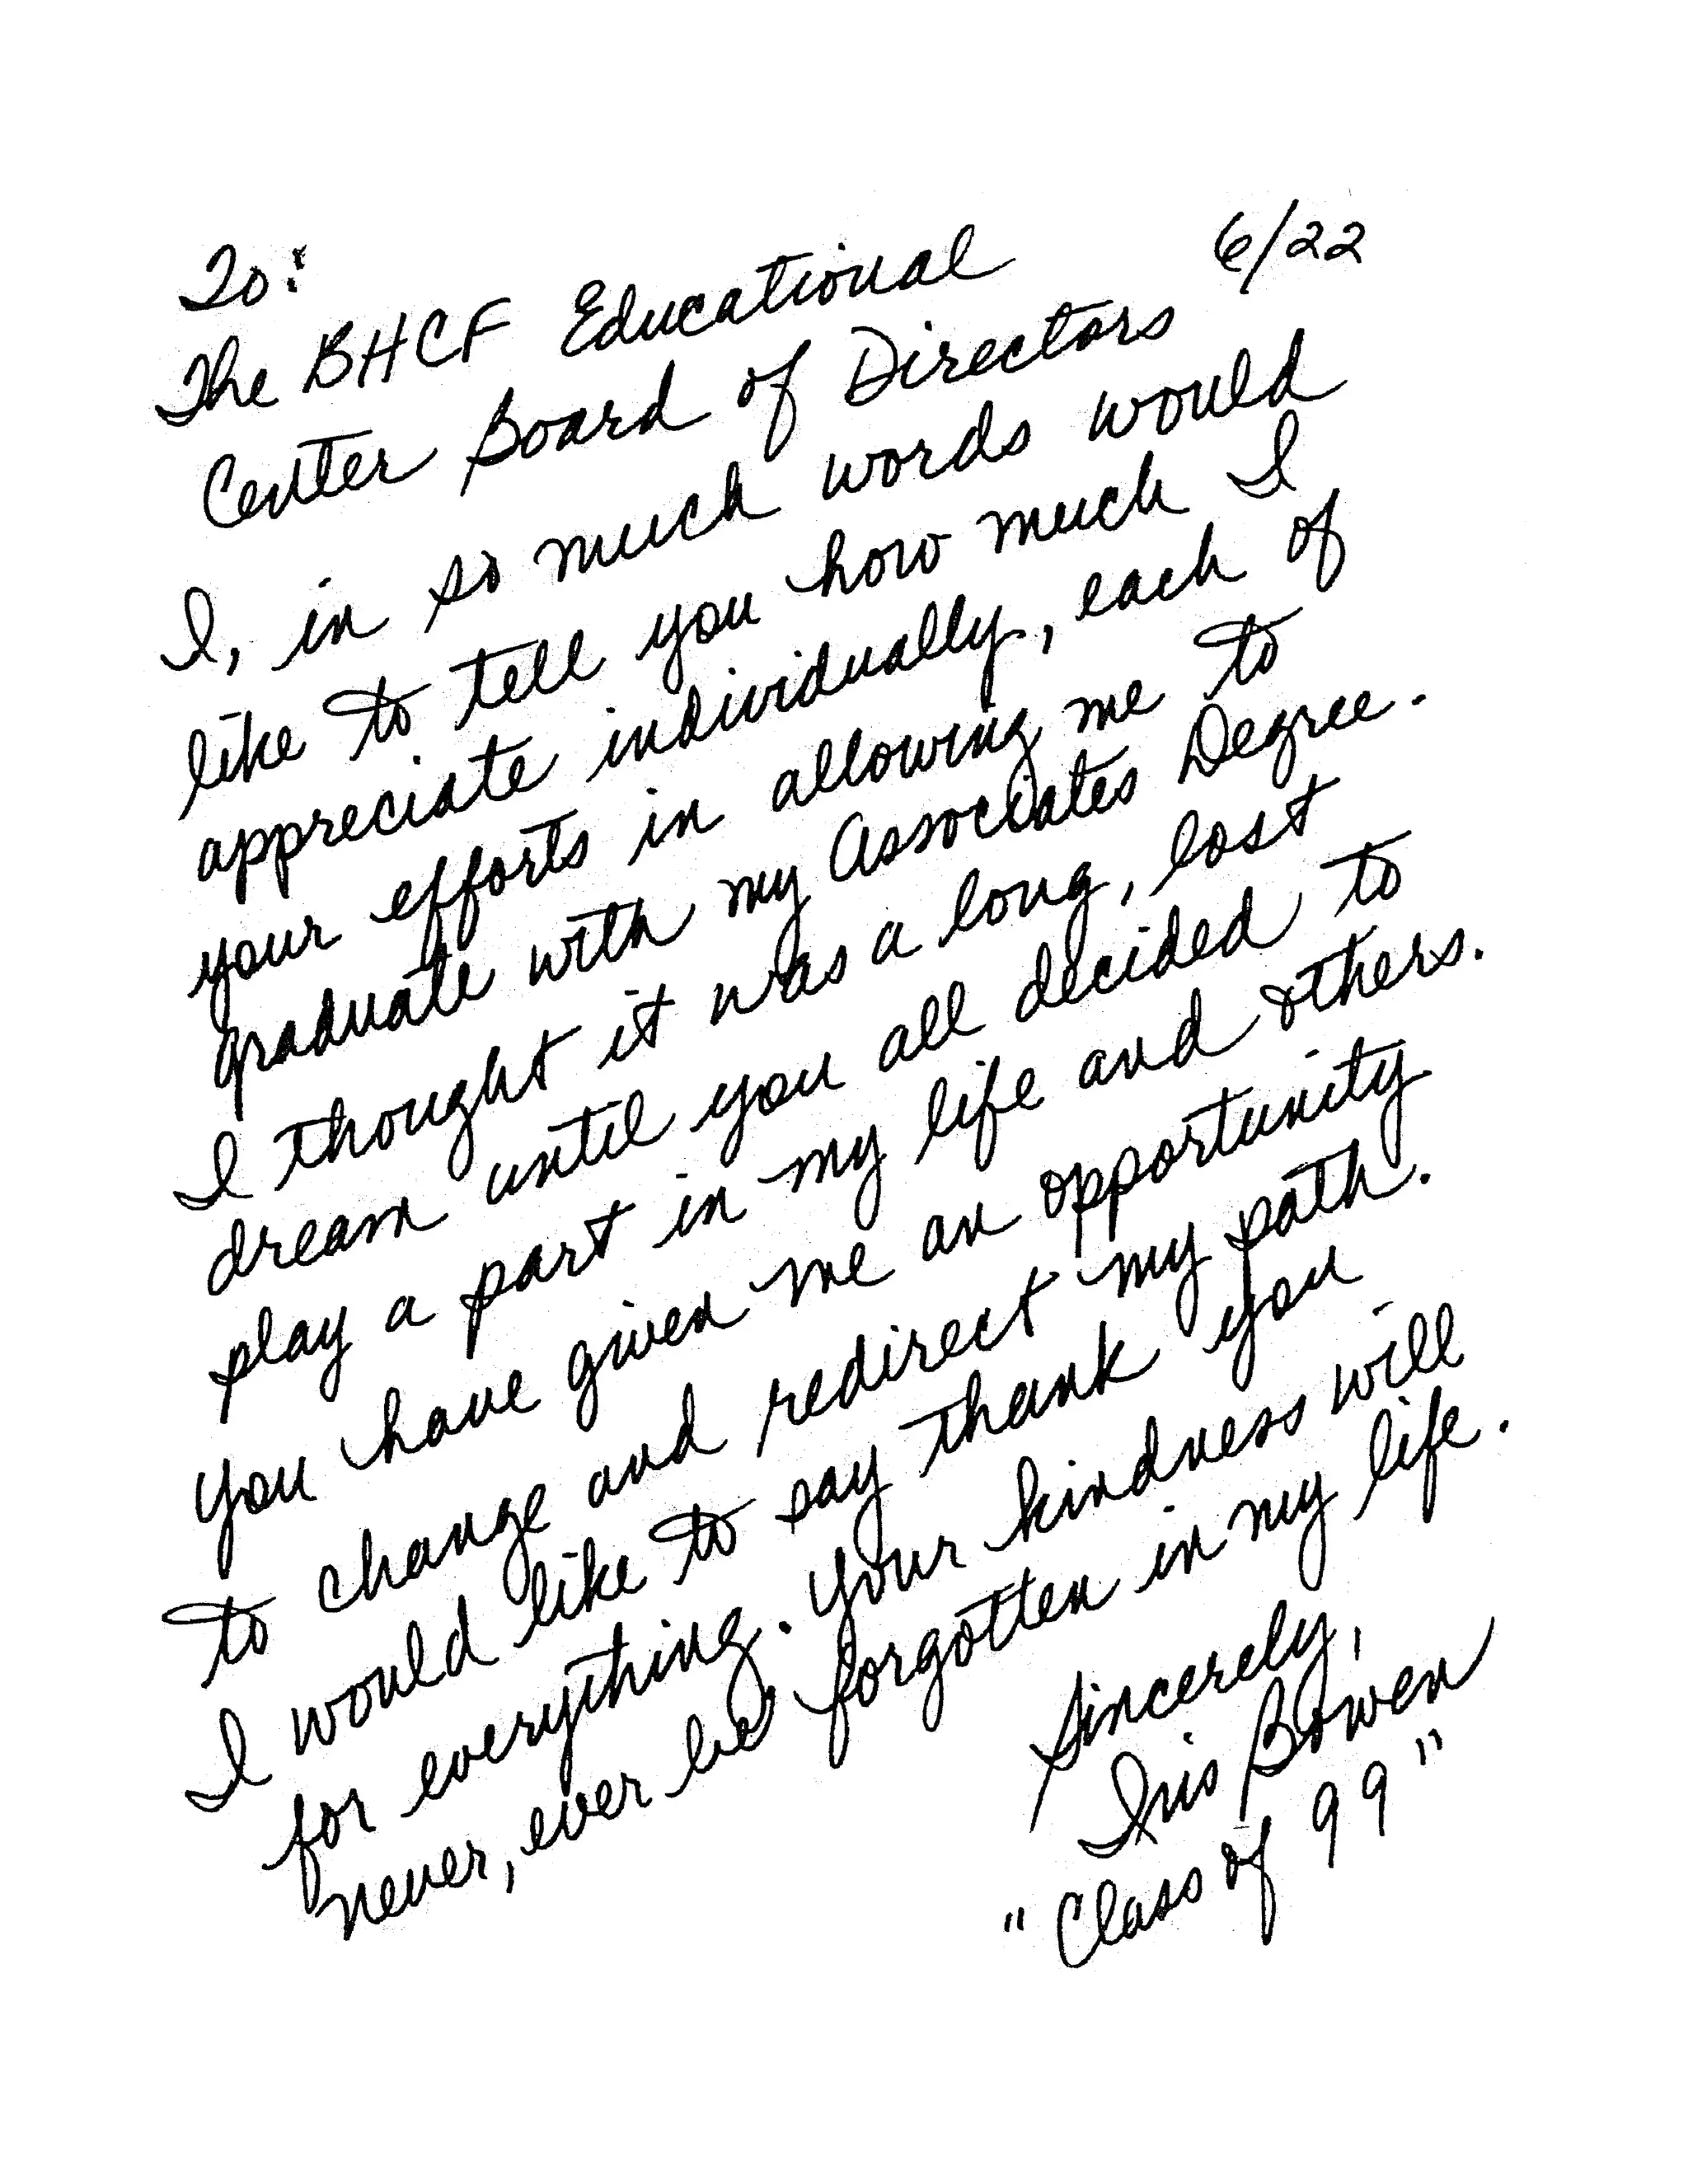 To: 6/22
The BHCF Educational
Center Board of Directors
I, in so much words would
like to tell you how much I
appreciate individually, each of
your efforts in allowing me to
graduate with my Associates Degree.
I thought it was a long, lost
dream until you all decided to
play a part in my life and others.
You have given me an opportunity
to change and redirect my path.
I would like to say thank you
for everything. Your kindness will
never, ever be forgotten in my life.
Sincerely,
Iris Bowen
"Class of 99"